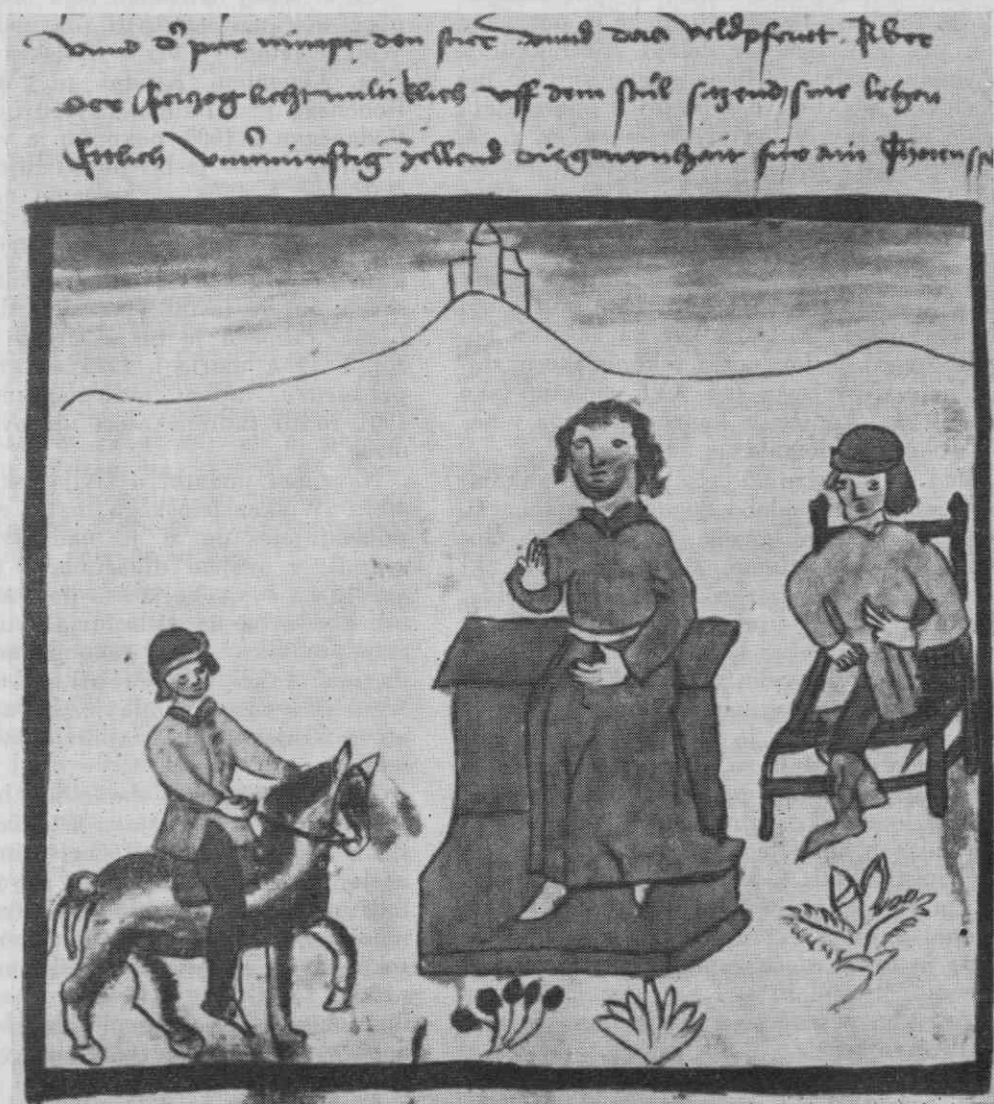 vnnd d' pure nimpt den stier vnnd das veldpferit. Aber
der herzog licht miltiklich vff dem stůl sizend / sine lehen
Ettlich zellend diz gewonhait für ain Thoren